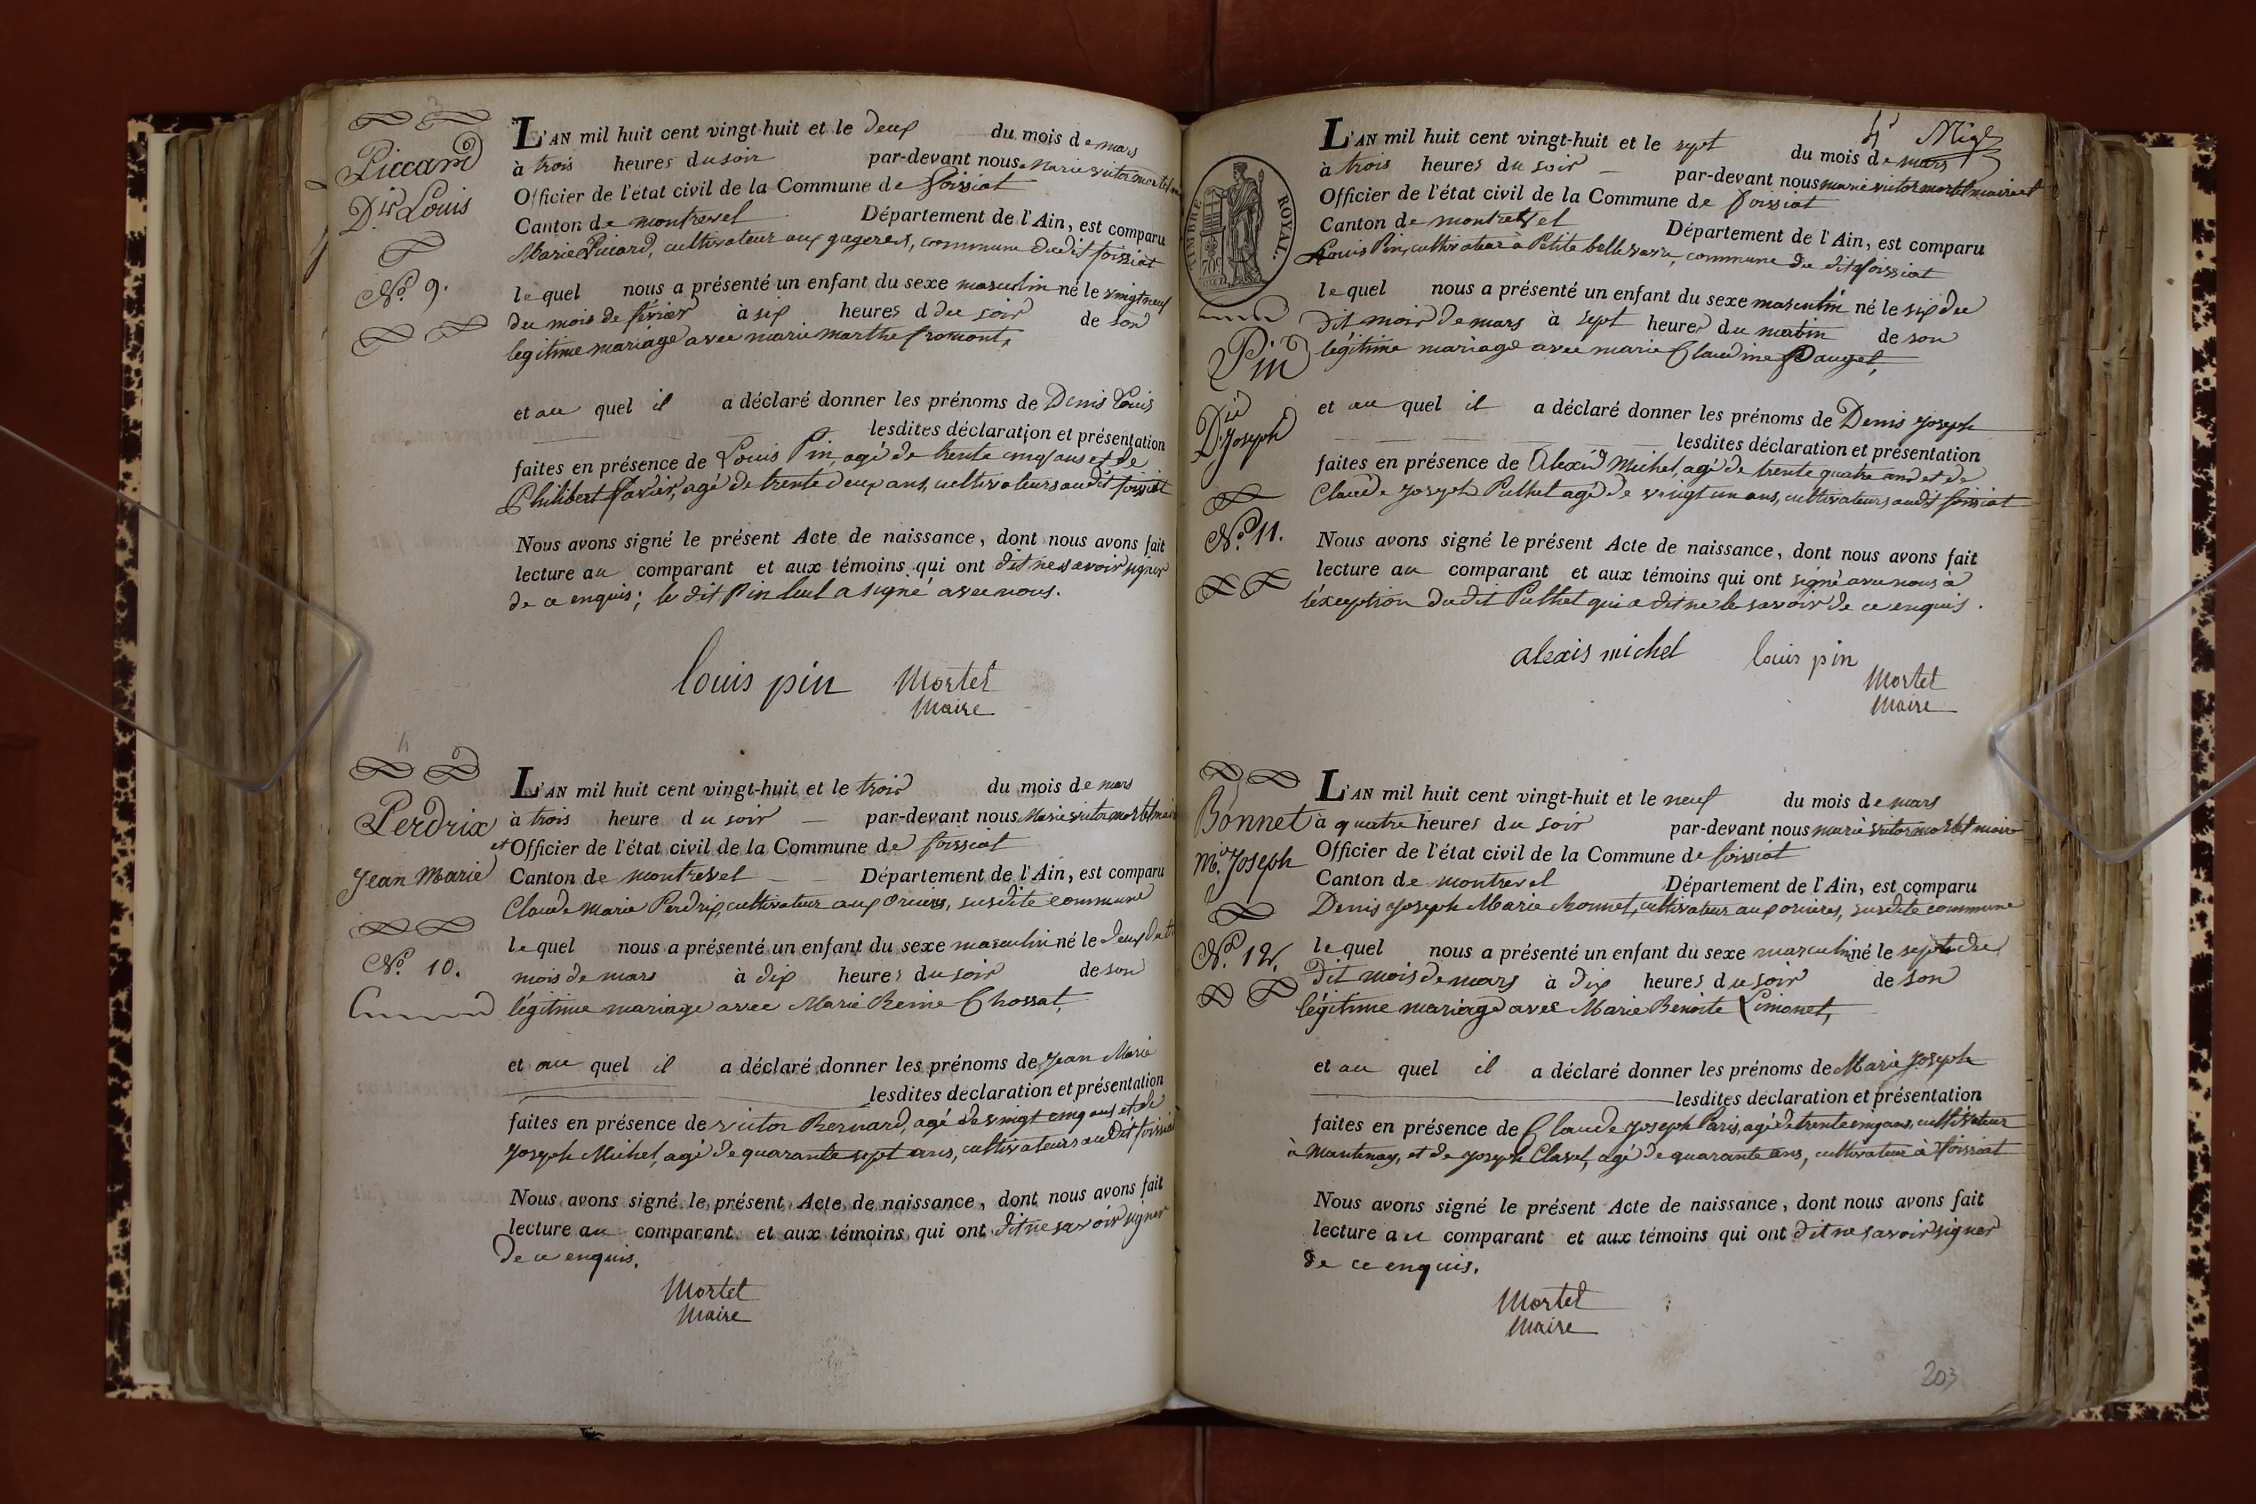 Piccard
D.is Louis
N.o 9.
L'AN mil huit cent vingt-huit et le deux du mois de mars
à trois heures du soir par-devant nous Marie victor mortel
Officier de l'état civil de la Commune de foissiat
Canton de montrevel Département de l'Ain, est comparu
Marie Picard, cultivateur aux commune dudit foissiat
lequel nous a présenté un enfant du sexe masculin né le vingt neuf
du mois de février à six heures d du soir de son
légitime mariage avec marie marthe fromont,
et au quel il a déclaré donner les prénoms de Denis Louis
lesdites déclaration et présentation
faites en présence de Louis Pin, agé de trente cinq ans et de
Philibert favier, agé de trente deux ans, cultivateurs au dit foissiat
Nous avons signé le présent Acte de naissance, dont nous avons fait
lecture au comparant et aux témoins qui ont dit ne savoir signer
de ce enquis; le dit Pin seul a signé avec nous.
louis pin Mortel
Maire
Perdrix
Jean Marie
N.o 10.
L'AN mil huit cent vingt-huit et le trois du mois de mars
à trois heure du soir par-devant nous Marie victor mortel maire
et Officier de l'état civil de la Commune de foissiat
Canton de montrevel Département de l'Ain, est comparu
Claude Marie Perdrix, cultivateur aux orieres, susdite commune
lequel nous a présenté un enfant du sexe masculin né le deux dudit
mois de mars à dix heures du soir de son
légitime mariage avec Marie Reine Chossat,
et au quel il a déclaré donner les prénoms de Jean Marie
lesdites déclaration et présentation
faites en présence de victor Bernard, agé de vingt cinq ans et de
Joseph Michel, agé de quarante sept ans, cultivateurs au dit foissiat
Nous avons signé le présent Acte de naissance, dont nous avons fait
lecture au comparant et aux témoins qui ont dit ne savoir signer
de ce enquis.
Mortel
Maire
TIMBRE ROYAL.
70c
Pin
D.is Joseph
N.o 11.
L'AN mil huit cent vingt-huit et le sept du mois de mars
à trois heures du soir par-devant nous marie victor mortel maire et
Officier de l'état civil de la Commune de foissiat
Canton de montrevel Département de l'Ain, est comparu
Louis Pin, cultivateur à Petite bellevavre, commune du dit foissiat
lequel nous a présenté un enfant du sexe masculin né le six du
dit mois de mars à sept heures du matin de son
légitime mariage avec marie Claudine Pauget,
et au quel il a déclaré donner les prénoms de Denis Joseph
lesdites déclaration et présentation
faites en présence de Alexis Michel, agé de trente quatre ans et de
Claude Joseph Puthet agé de vingt un ans, cultivateurs audit foissiat
Nous avons signé le présent Acte de naissance, dont nous avons fait
lecture au comparant et aux témoins qui ont signé avec nous à
l'exception dudit Puthet qui a dit ne le savoir de ce enquis.
alexis michel louis pin
Mortel
Maire
Bonnet
M.ie Joseph
N.o 12.
L'AN mil huit cent vingt-huit et le neuf du mois de mars
à quatre heures du soir par-devant nous marie victor mortel maire
Officier de l'état civil de la Commune de foissiat
Canton de montrevel Département de l'Ain, est comparu
Denis Joseph Marie bonnet, cultivateur aux orieres, susdite commune
lequel nous a présenté un enfant du sexe masculin né le sept du
dit mois de mars à dix heures du soir de son
légitime mariage avec Marie Benoite Limonet,
et au quel il a déclaré donner les prénoms de Marie Joseph
lesdites déclaration et présentation
faites en présence de Claude Joseph Paris, agé de trente cinq ans, cultivateur
à Mantenay, et de Joseph Clavel, agé de quarante ans, cultivateur à foissiat
Nous avons signé le présent Acte de naissance, dont nous avons fait
lecture au comparant et aux témoins qui ont dit ne savoir signer
de ce enquis.
Mortel
Maire
203